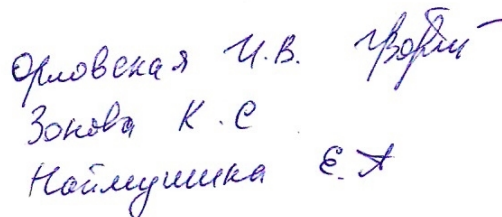 Орловская И.В.
Зонова К.С
Наймушина Е.А